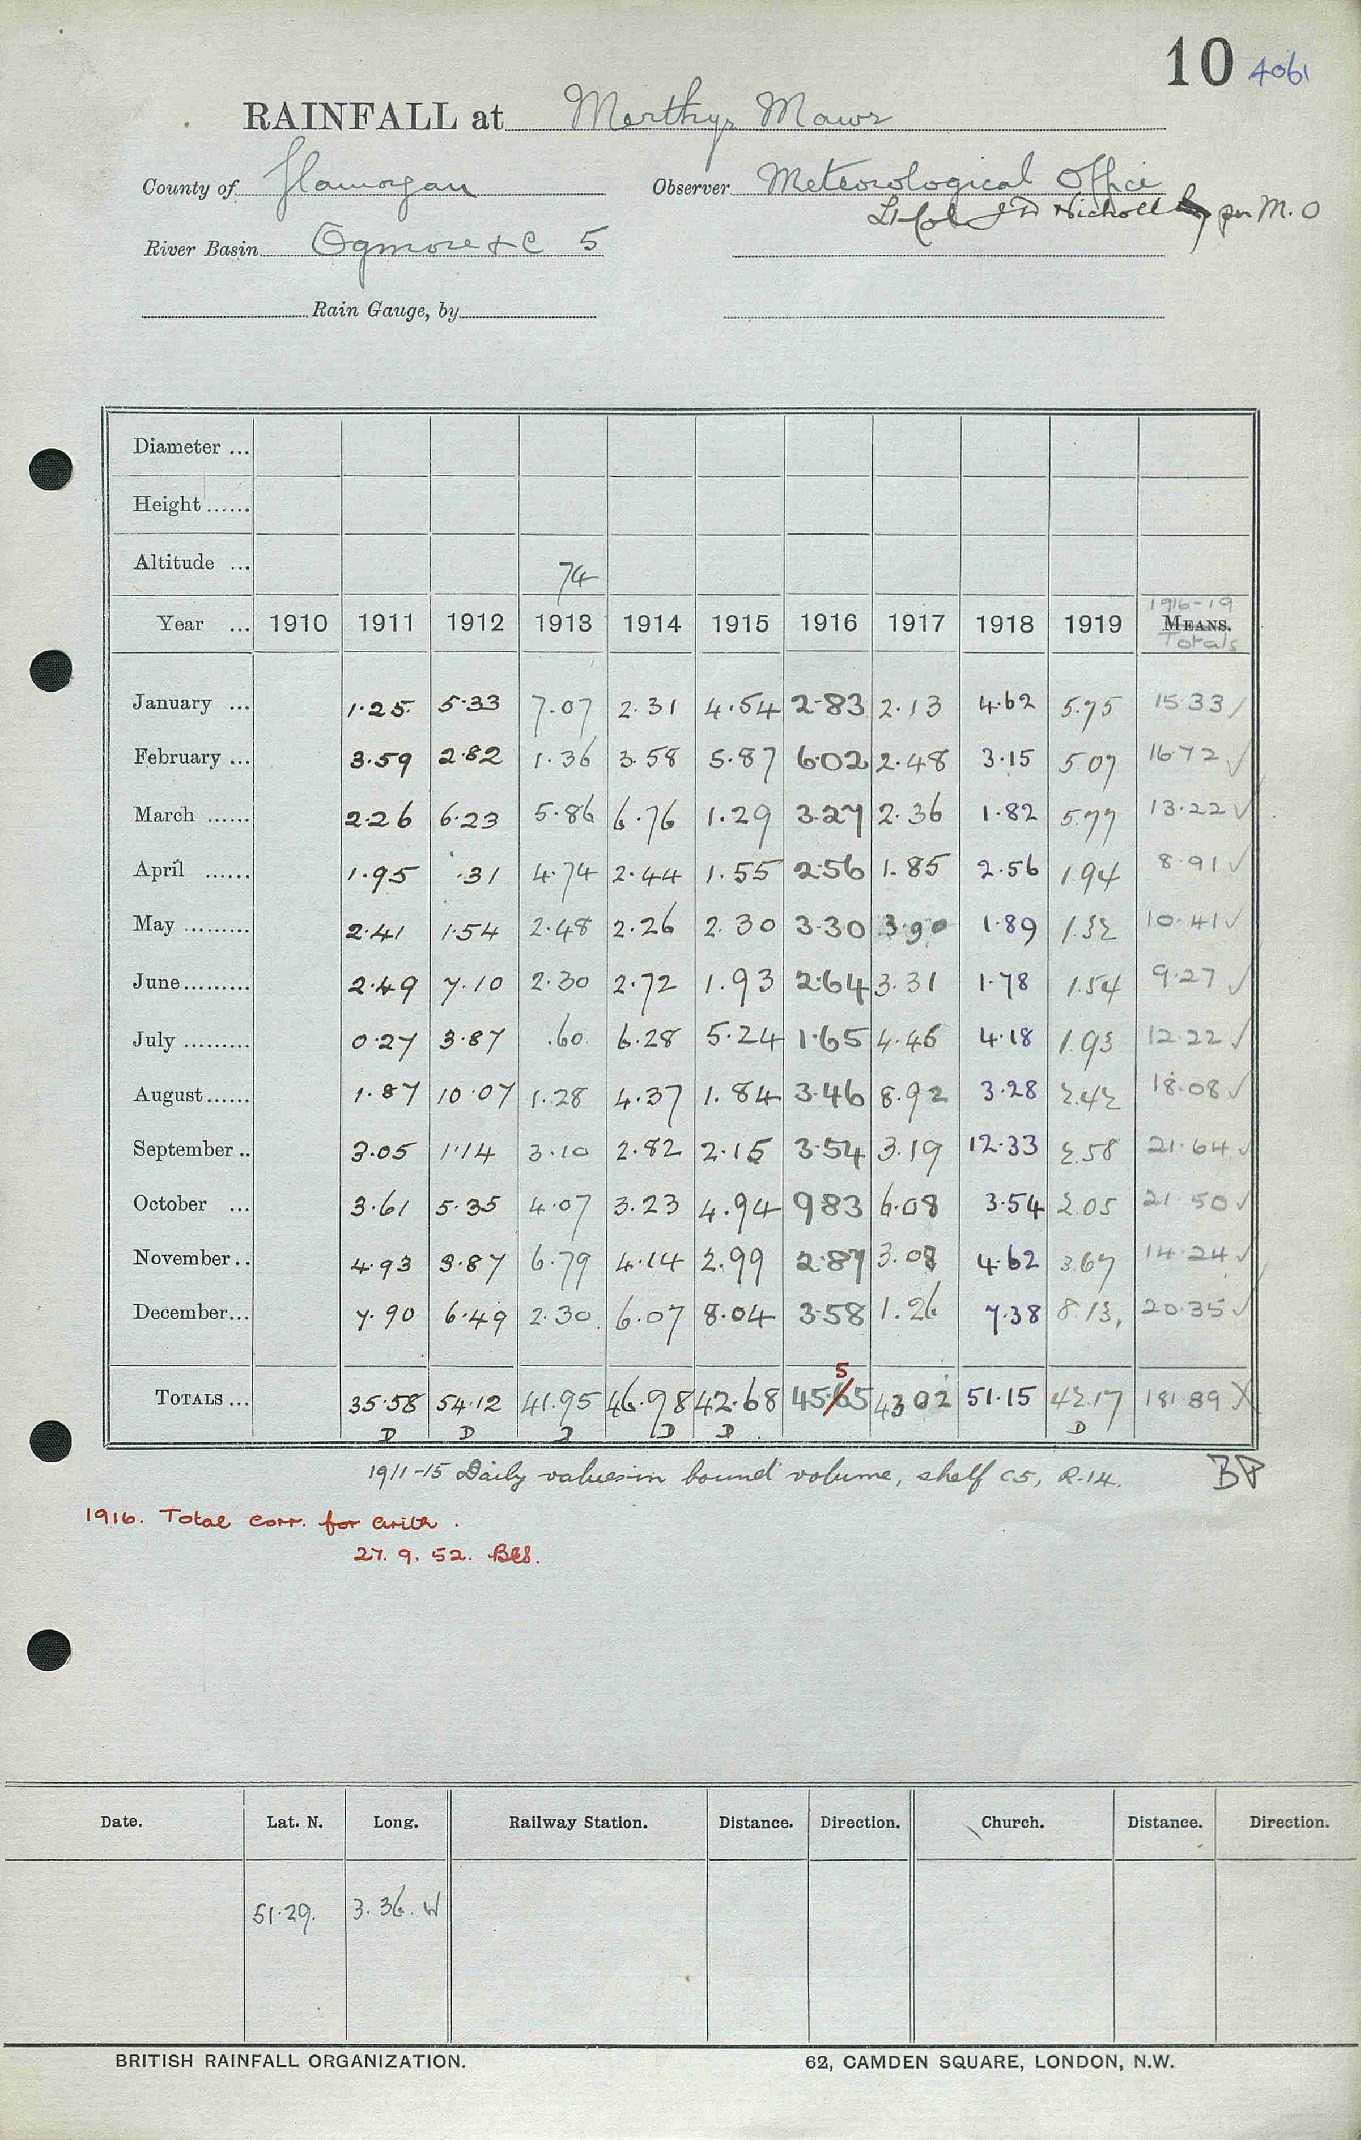 10 4061
RAINFALL at Merthyr Mawr
County of Glamorgan Observer Meteorological Office
Lt Col J D Nicholl per M.O
River Basin Ogmore &c 5
Rain Gauge, by
Diameter ...
Height ......
Altitude ... 74
Year ... 1910 1911 1912 1913 1914 1915 1916 1917 1918 1919 1916-19 MEANS. Totals
January ... 1.25 5.33 7.07 2.31 4.54 2.83 2.13 4.62 5.75 15.33 /
February ... 3.59 2.82 1.36 3.58 5.87 6.02 2.48 3.15 5.07 16.72 ✓
March ...... 2.26 6.23 5.86 6.76 1.29 3.27 2.36 1.82 5.77 13.22 ✓
April ...... 1.95 .31 4.74 2.44 1.55 2.56 1.85 2.56 1.94 8.91 ✓
May ......... 2.41 1.54 2.48 2.26 2.30 3.30 3.90 1.89 1.32 10.41 ✓
June ......... 2.49 7.10 2.30 2.72 1.93 2.64 3.31 1.78 1.54 9.27 ✓
July ......... 0.27 3.87 .60 6.28 5.24 1.65 4.46 4.18 1.93 12.22 ✓
August ...... 1.87 10.07 1.28 4.37 1.84 3.46 8.92 3.28 2.42 18.08 ✓
September .. 3.05 1.14 3.10 2.82 2.15 3.54 3.19 12.33 2.58 21.64 ✓
October ... 3.61 5.35 4.07 3.23 4.94 9.83 6.08 3.54 2.05 21.50 ✓
November .. 4.93 3.87 6.79 4.14 2.99 2.87 3.08 4.62 3.67 14.24 ✓
December ... 7.90 6.49 2.30 6.07 8.04 3.58 1.26 7.38 8.13 20.35 ✓
5
TOTALS ... 35.58 54.12 41.95 46.98 42.68 45.65 43.02 51.15 42.17 181.89 X
D D D D D D
1911-15 Daily values in bound volume, shelf C5, R.14. BP
1916. Total corr. for arith.
27. 9. 52.
Date. Lat. N. Long. Railway Station. Distance. Direction. Church. Distance. Direction.
51.29. 3.36.W
BRITISH RAINFALL ORGANIZATION. 62, CAMDEN SQUARE, LONDON, N.W.